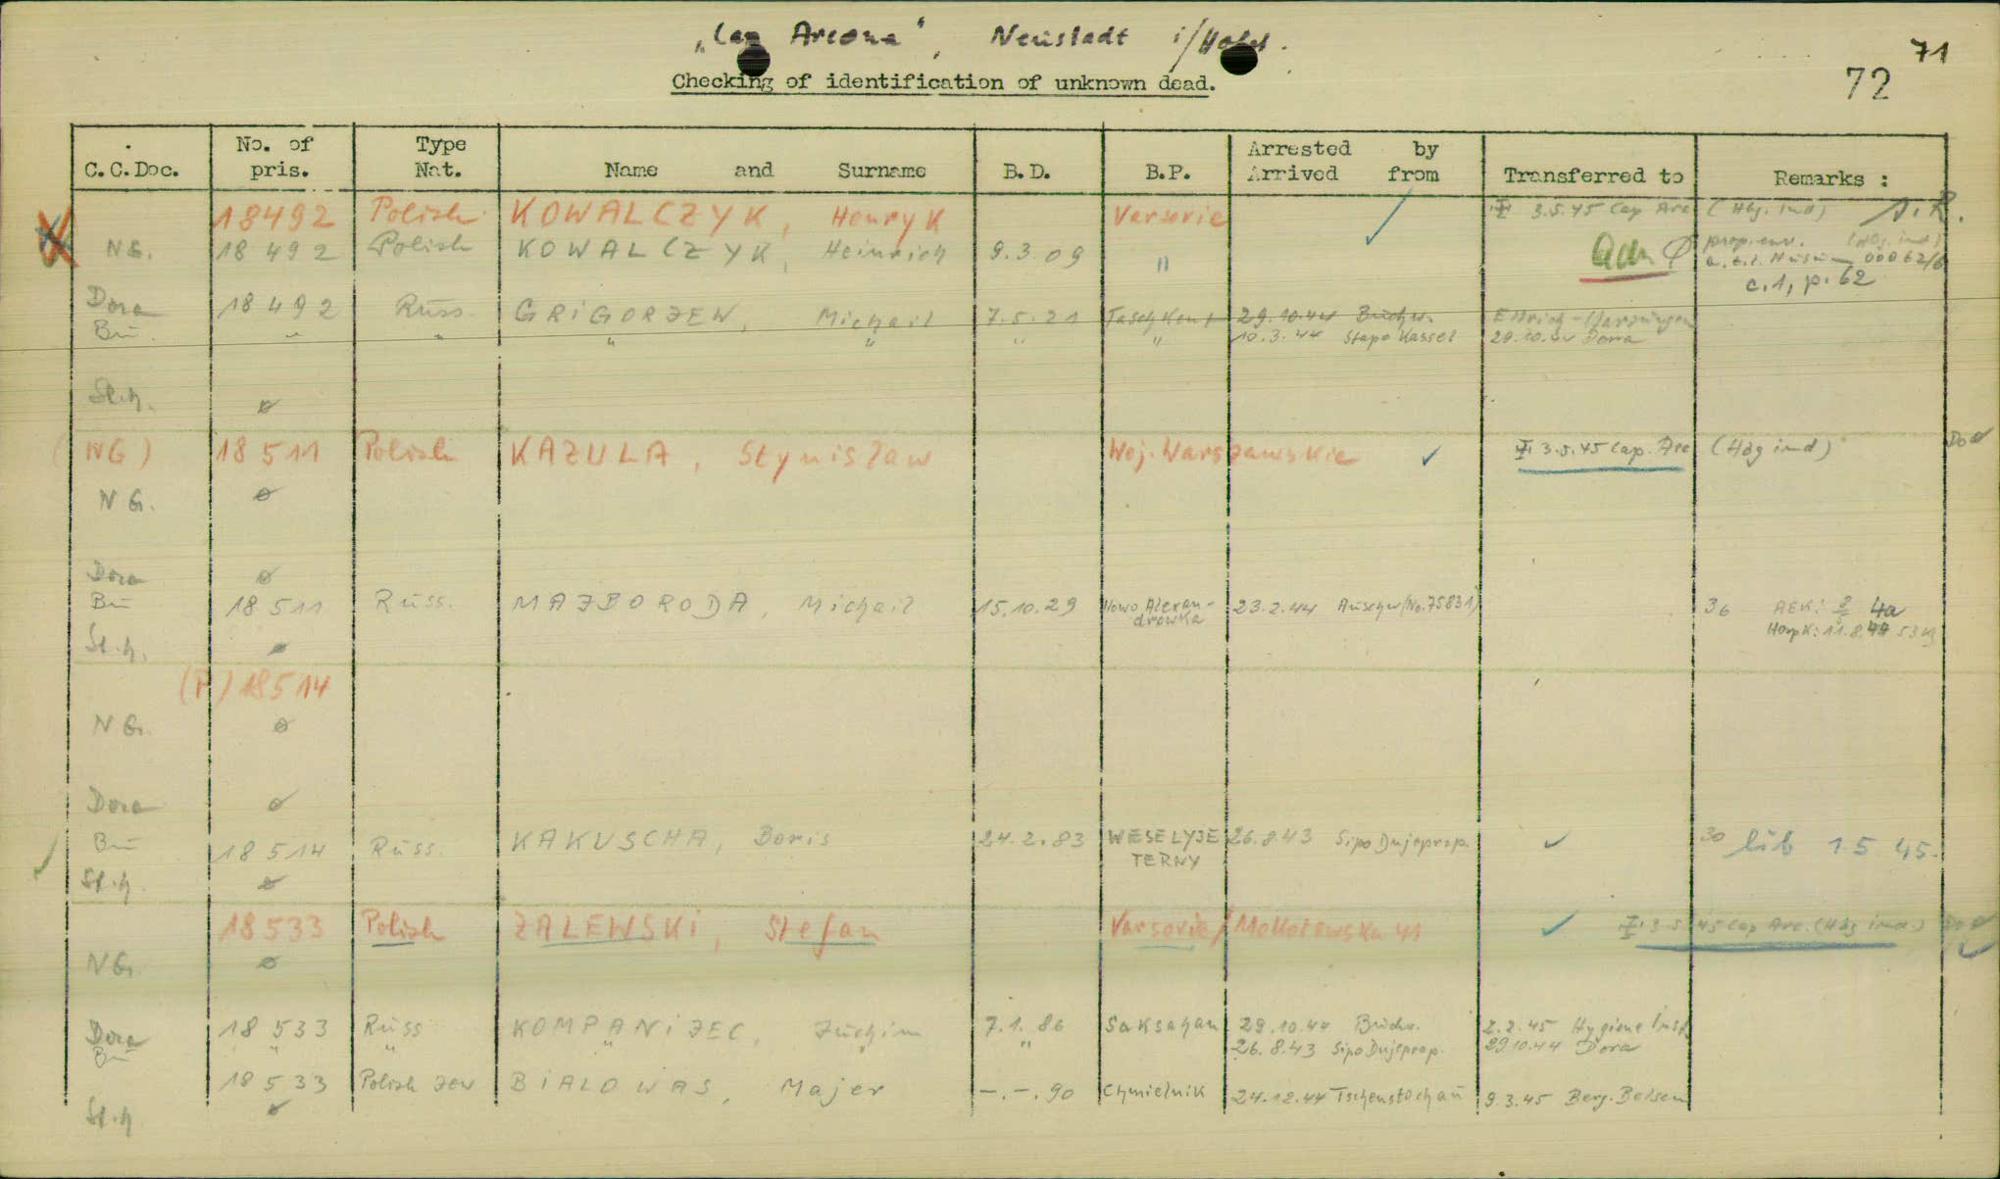 "Cap Arcona", Neustadt i/Holst.
71
72
Checking of identification of unknown dead.
C.C.Doc. No. of pris. Type Nat. Name and Surname B.D. B.P. Arrested by Arrived from Transferred to Remarks :
18492 Polish KOWALCZYK, Henryk Varsovie 3.5.45 Cap Arc (Hbg. ind)
NG. 18 492 Polish KOWALCZYK, Heinrich 9.3.09 "
c.1, p.62
Dora 18 492 Russ. GRIGORJEW, Michail 7.5.21 Taschkent 29.10.44 Buchw. Ellrich-Harzungen
Bu. " " " " " " 10.3.44 Stapo Kassel 29.10.44 Dora
St.h. ø
(NG) 18 511 Polish KAZULA, Stynislaw Woj. Warszawskie ✓ 3.5.45 Cap. Arc (Hbg ind)
NG. ø
Dora ø
Bu 18 511 Russ. MAJBORODA, Michail 15.10.29 Nowo Alexandrowka 23.2.44 Auschw(No.75831) 36 AEK: 4a
St.h. ø
(P) 18514
NG. ø
Dora ø
Bu 18 514 Russ. KAKUSCHA, Boris 24.2.83 WESELYJE TERNY 26.8.43 Sipo Dnjeprop. ✓ 30 lib 1.5 45.
St.h. ø
18533 Polish ZALEWSKI, Stefan Varsovie/Mokotowska 41 ✓ 3.5.45 Cap Arc. (Hbg ind.)
NG. ø
Dora 18 533 Russ KOMPANIJEC, Juchim 7.1.86 Saksahan 29.10.44 Buchw. 2.2.45 Hygiene Inst.
Bu " " " " 26.8.43 Sipo Dnjeprop. 29.10.44 Dora
18 533 Polish Jew BIALOWAS, Majer -.-.90 Chmielnik 24.12.44 Tschenstochau 9.3.45 Berg. Belsen
St.h